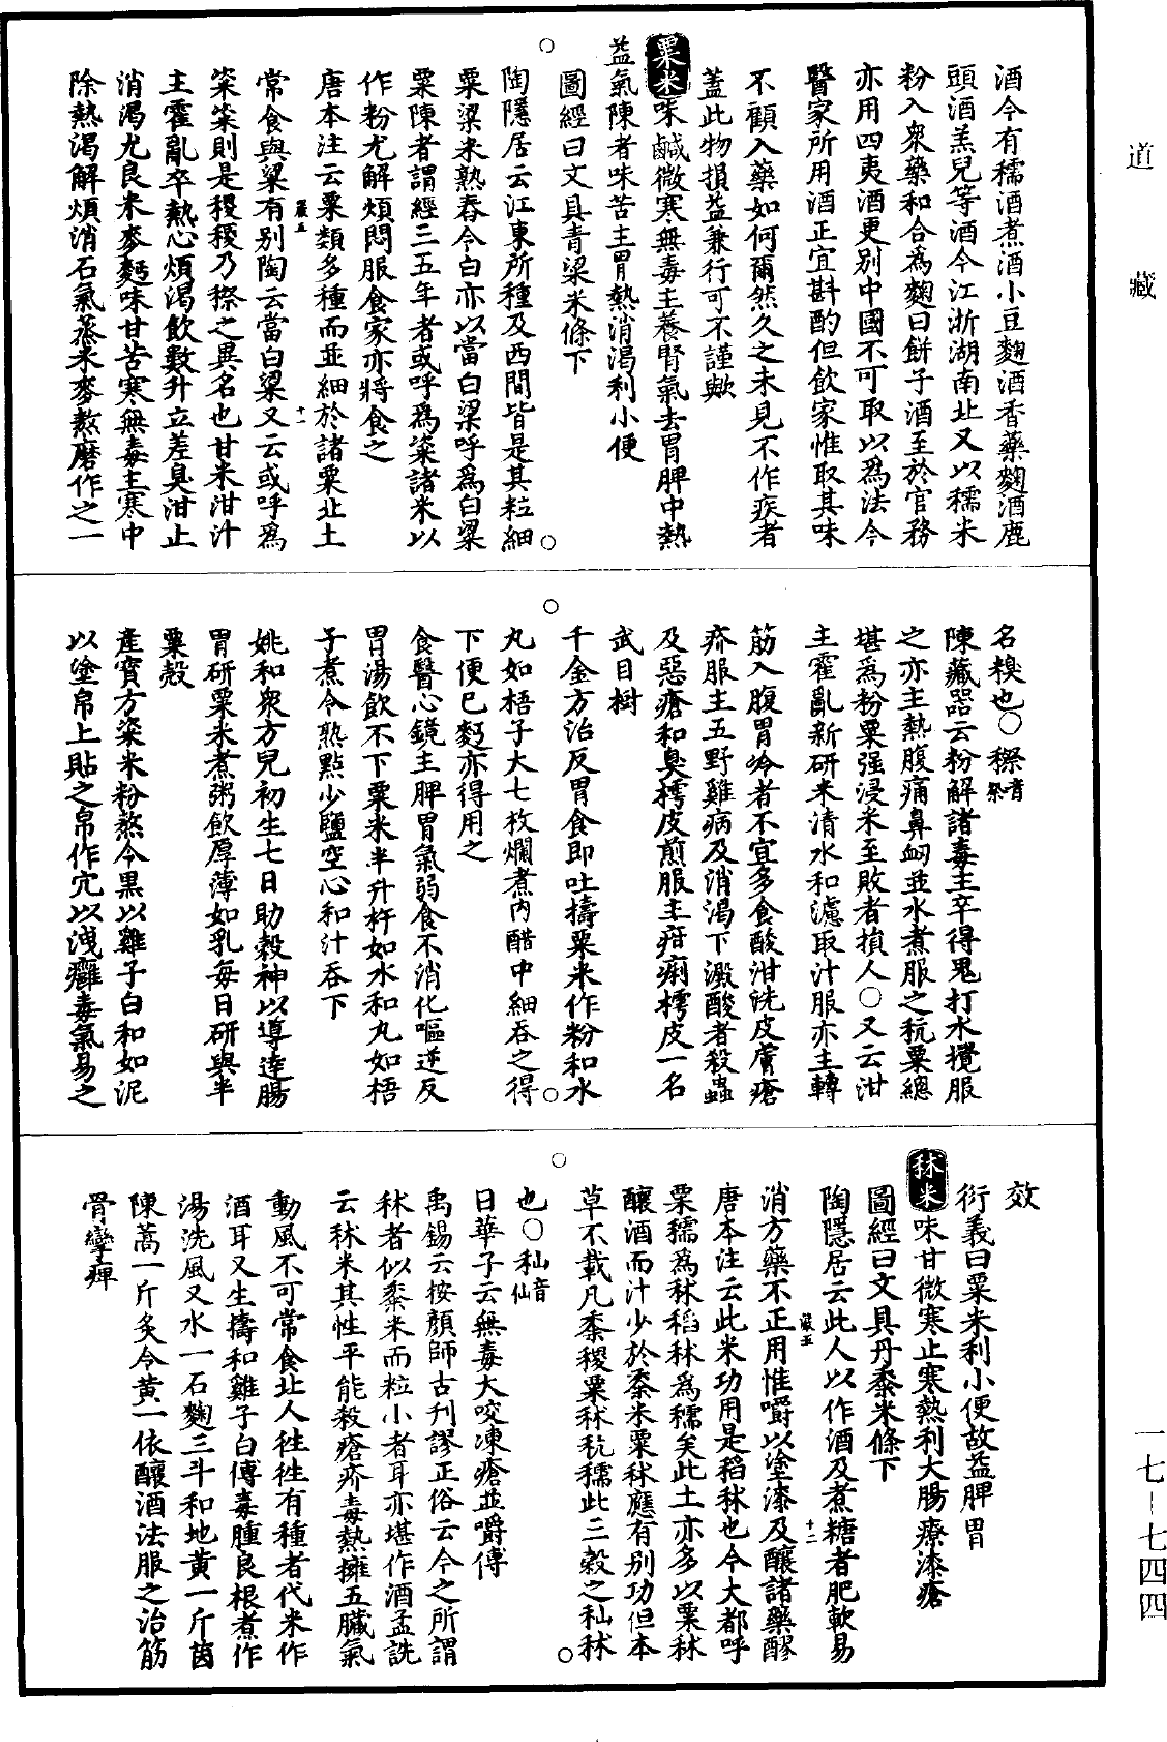 道藏
酒今有糯酒煮酒小豆麴酒香藥麴酒鹿
頭酒羔兒等酒今江浙湖南北又以糯米
粉入衆藥和合為麴曰餅子酒至於官務
亦用四夷酒更别中國不可取以為法今
醫家所用酒正宜斟酌但飲家惟取其味
不顧入藥如何爾然久之未見不作疾者
蓋此物損益兼行可不謹歟
粟米味鹹微寒無毒主養腎氣去胃脾中熱
益氣陳者味苦主胃熱消渴利小便
圖經曰文具青粱米條下
陶隱居云江東所種及西間皆是其粒細
粟粱米熟舂令白亦以當白粱呼為白粱
粟陳者謂經三五年者或呼為粢諸米以
作粉尤解煩悶服食家亦將食之
唐本注云粟類多種而並細於諸粟北土
常食與粱有别陶云當白粱又云或呼為
粢粢則是稷稷乃穄之異名也甘米泔汁
主霍亂卒熱心煩渴飲數升立差臭泔止
消渴尤良米麥麨味甘苦寒無毒主寒中
除熱渴解煩消石氣蒸米麥熬磨作之一
名糗也○穄音祭
陳藏器云粉解諸毒主卒得鬼打水攪服
之亦主熱腹痛鼻衂並水煮服之秔粟總
堪為粉粟强浸米至敗者損人○又云泔
主霍亂新研米清水和濾取汁服亦主轉
筋入腹胃冷者不宜多食酸泔洗皮膚瘡
疥服主五野雞病及消渴下澱酸者殺蟲
及惡瘡和臭樗皮煎服主疳痢樗皮一名
武目樹
千金方治反胃食即吐擣粟米作粉和水
丸如梧子大七枚爛煮内醋中細吞之得
下便已麨亦得用之
食醫心鏡主脾胃氣弱食不消化嘔逆反
胃湯飲不下粟米半升杵如水和丸如梧
子煮令熟點少鹽空心和汁吞下
姚和衆方兒初生七日助穀神以導達腸
胃研粟米煮粥飲厚薄如乳每日研與半
粟殼
產寶方粢米粉熬令黑以雞子白和如泥
以塗帛上貼之帛作穴以洩癰毒氣易之
效
衍義曰粟米利小便故益脾胃
秫米味甘微寒止寒熱利大腸療漆瘡
圖經曰文具丹黍米條下
陶隱居云此人以作酒及煮糖者肥軟易
消方藥不正用惟嚼以塗漆及釀諸藥醪
唐本注云此米功用是稻秫也今大都呼
粟糯為秫稻秫為糯矣此土亦多以粟秫
釀酒而汁少於黍米粟秫應有别功但本
草不載凡黍稷粟秫秔糯此三穀之秈秫
也○秈音仙
日華子云無毒犬咬凍瘡並嚼傅
禹錫云按顏師古刋謬正俗云今之所謂
秫者似黍米而粒小者耳亦堪作酒孟詵
云秫米其性平能殺瘡疥毒熱擁五臟氣
動風不可常食北人徃徃有種者代米作
酒耳又生擣和雞子白傅毒腫良根煮作
湯洗風又水一石麴三斗和地黃一斤茵
陳蒿一斤炙令黄一依釀酒法服之治筋
骨攣痺
一七-七四四